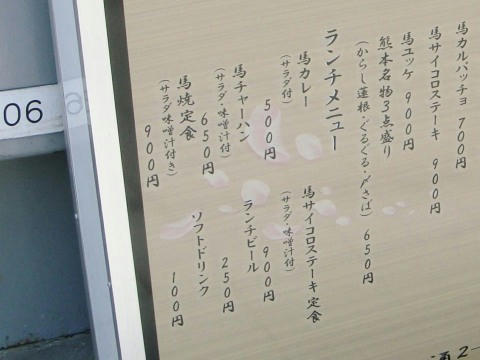 馬カルパッチョ 700円
馬サイコロステーキ 900円
馬ユッケ 900円
熊本名物3点盛り
(からし蓮根・ぐるぐる・〆さば) 650円
ランチメニュー
馬カレー 500円
(サラダ付)
馬サイコロステーキ定食 900円
(サラダ・味噌汁付)
馬チャーハン 650円
(サラダ・味噌汁付)
ランチビール 250円
馬焼定食 900円
(サラダ・味噌汁付き)
ソフトドリンク 100円
06